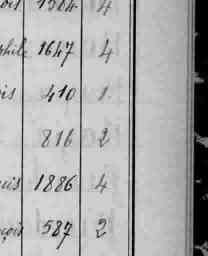 1564 4
phile 1647 4
is 410 1
816 2
uis 1886 4
çois 587 2